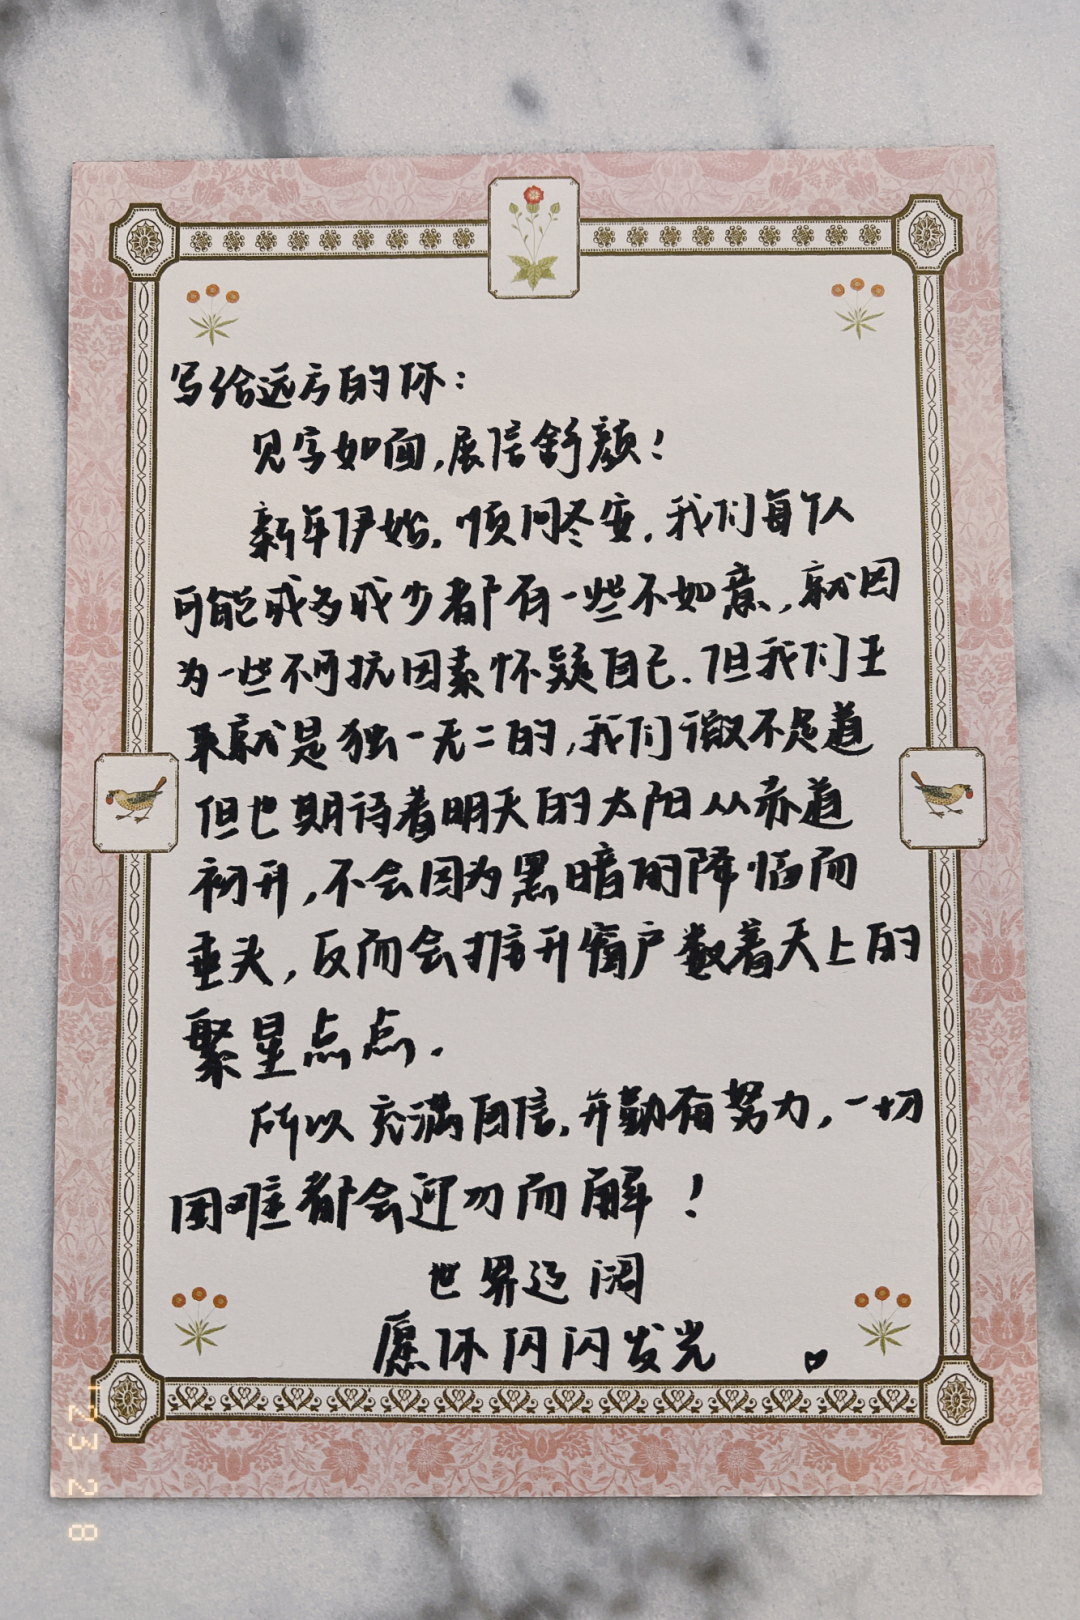 写给远方的你：
见字如面，展信舒颜！
新年伊始，顺问冬安，我们每个人
可能或多或少都有一些不如意，就因
为一些不可抗因素怀疑自己.但我们生
来就是独一无二的，我们微不足道
但也期待着明天的太阳从赤道
初升，不会因为黑暗的降临而
垂头，反而会推开窗户数着天上的
繁星点点.
所以充满自信，并勤有努力，一切
困难都会迎刃而解！
世界辽阔
愿你闪闪发光
'23 2 8